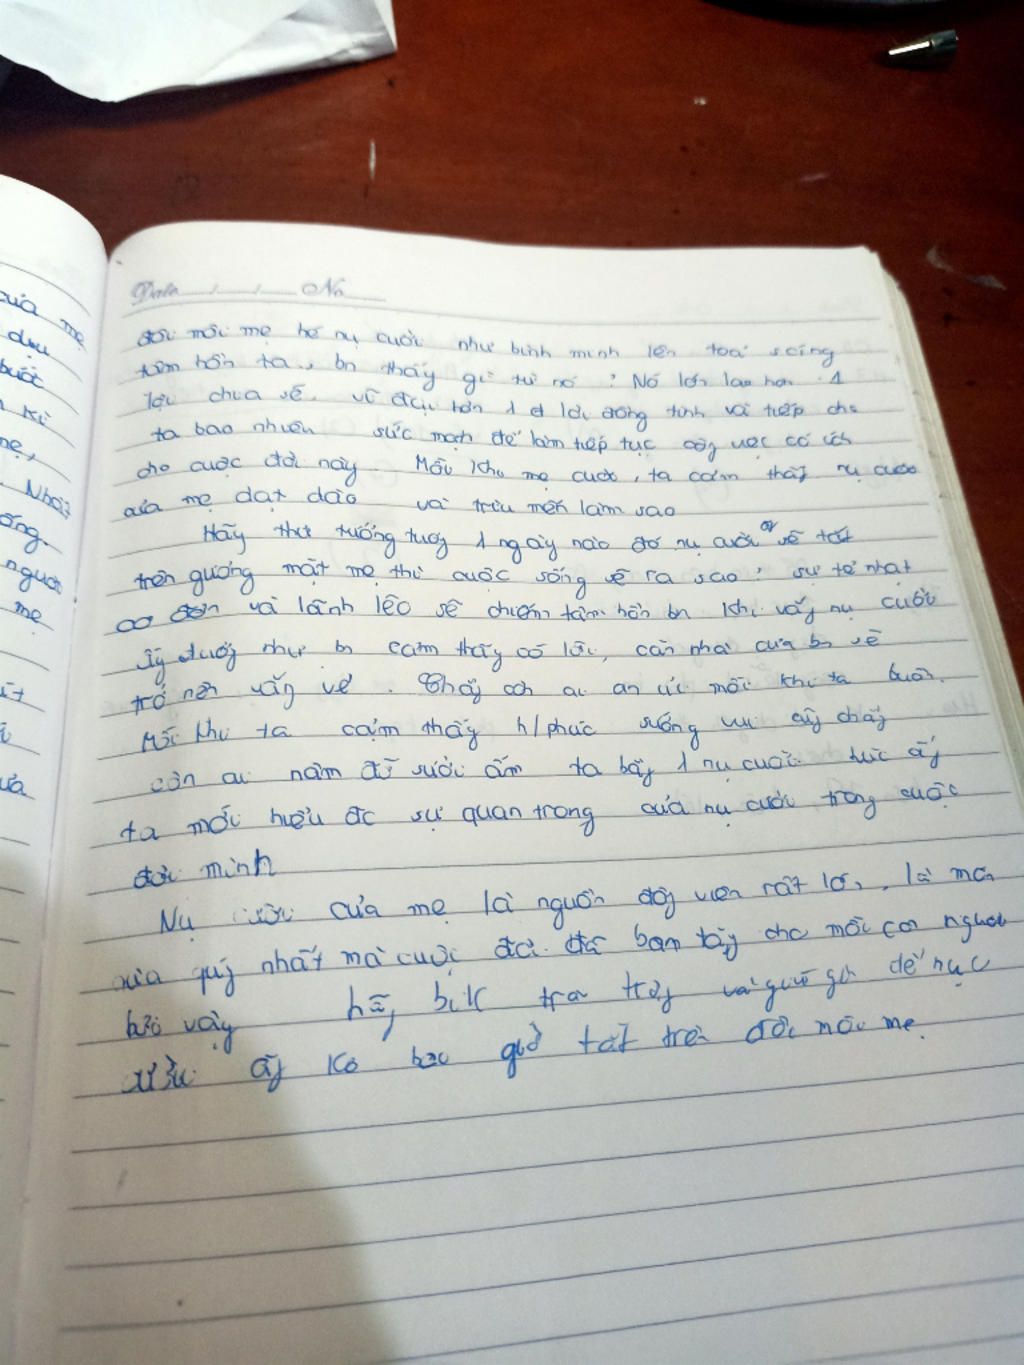 của mẹ
dịu
bước
mẹ,
Nhoà
ống.
người
mẹ
Date / / No
đôi môi mẹ hé nụ cười như bình minh lên toả sáng
tâm hồn ta, bn thấy gì từ nó ? Nó lớn lao hơn 1
lời chia sẻ, vĩ đại hơn 1 lời động tình và tiếp cho
ta bao nhiêu sức mạnh để làm tiếp tục công việc có ích
cho cuộc đời này. Mỗi khi mẹ cười, ta cảm thấy nụ cười
của mẹ dạt dào và trìu mến làm sao
Hãy thử tưởng tượng 1 ngày nào đó nụ cười ấy sẽ tắt
trên gương mặt mẹ thì cuộc sống sẽ ra sao? sự tẻ nhạt
cô đơn và lãnh lẽo sẽ chiếm tâm hồn bn. Khi vắng nụ cười
ấy dường như bn cảm thấy có lỗi, căn nhà của bn sẽ
trở nên vắng vẻ. Chẳng còn ai an ủi mỗi khi ta buồn.
Mỗi khi ta cảm thấy h/phúc sướng vui cũng chẳng
còn ai nằm để sưởi ấm ta bằng 1 nụ cười. lúc ấy
ta mới hiểu đc sự quan trọng của nụ cười trong cuộc
đời mình
Nụ cười của mẹ là nguồn động viên rất lớn, là món
quà quý nhất mà cuộc đời đã ban tặng cho mỗi con người
bởi vậy hãy biết trân trọng và giữ gìn để nục
cười ấy ko bao giờ tắt trên đôi môi mẹ.